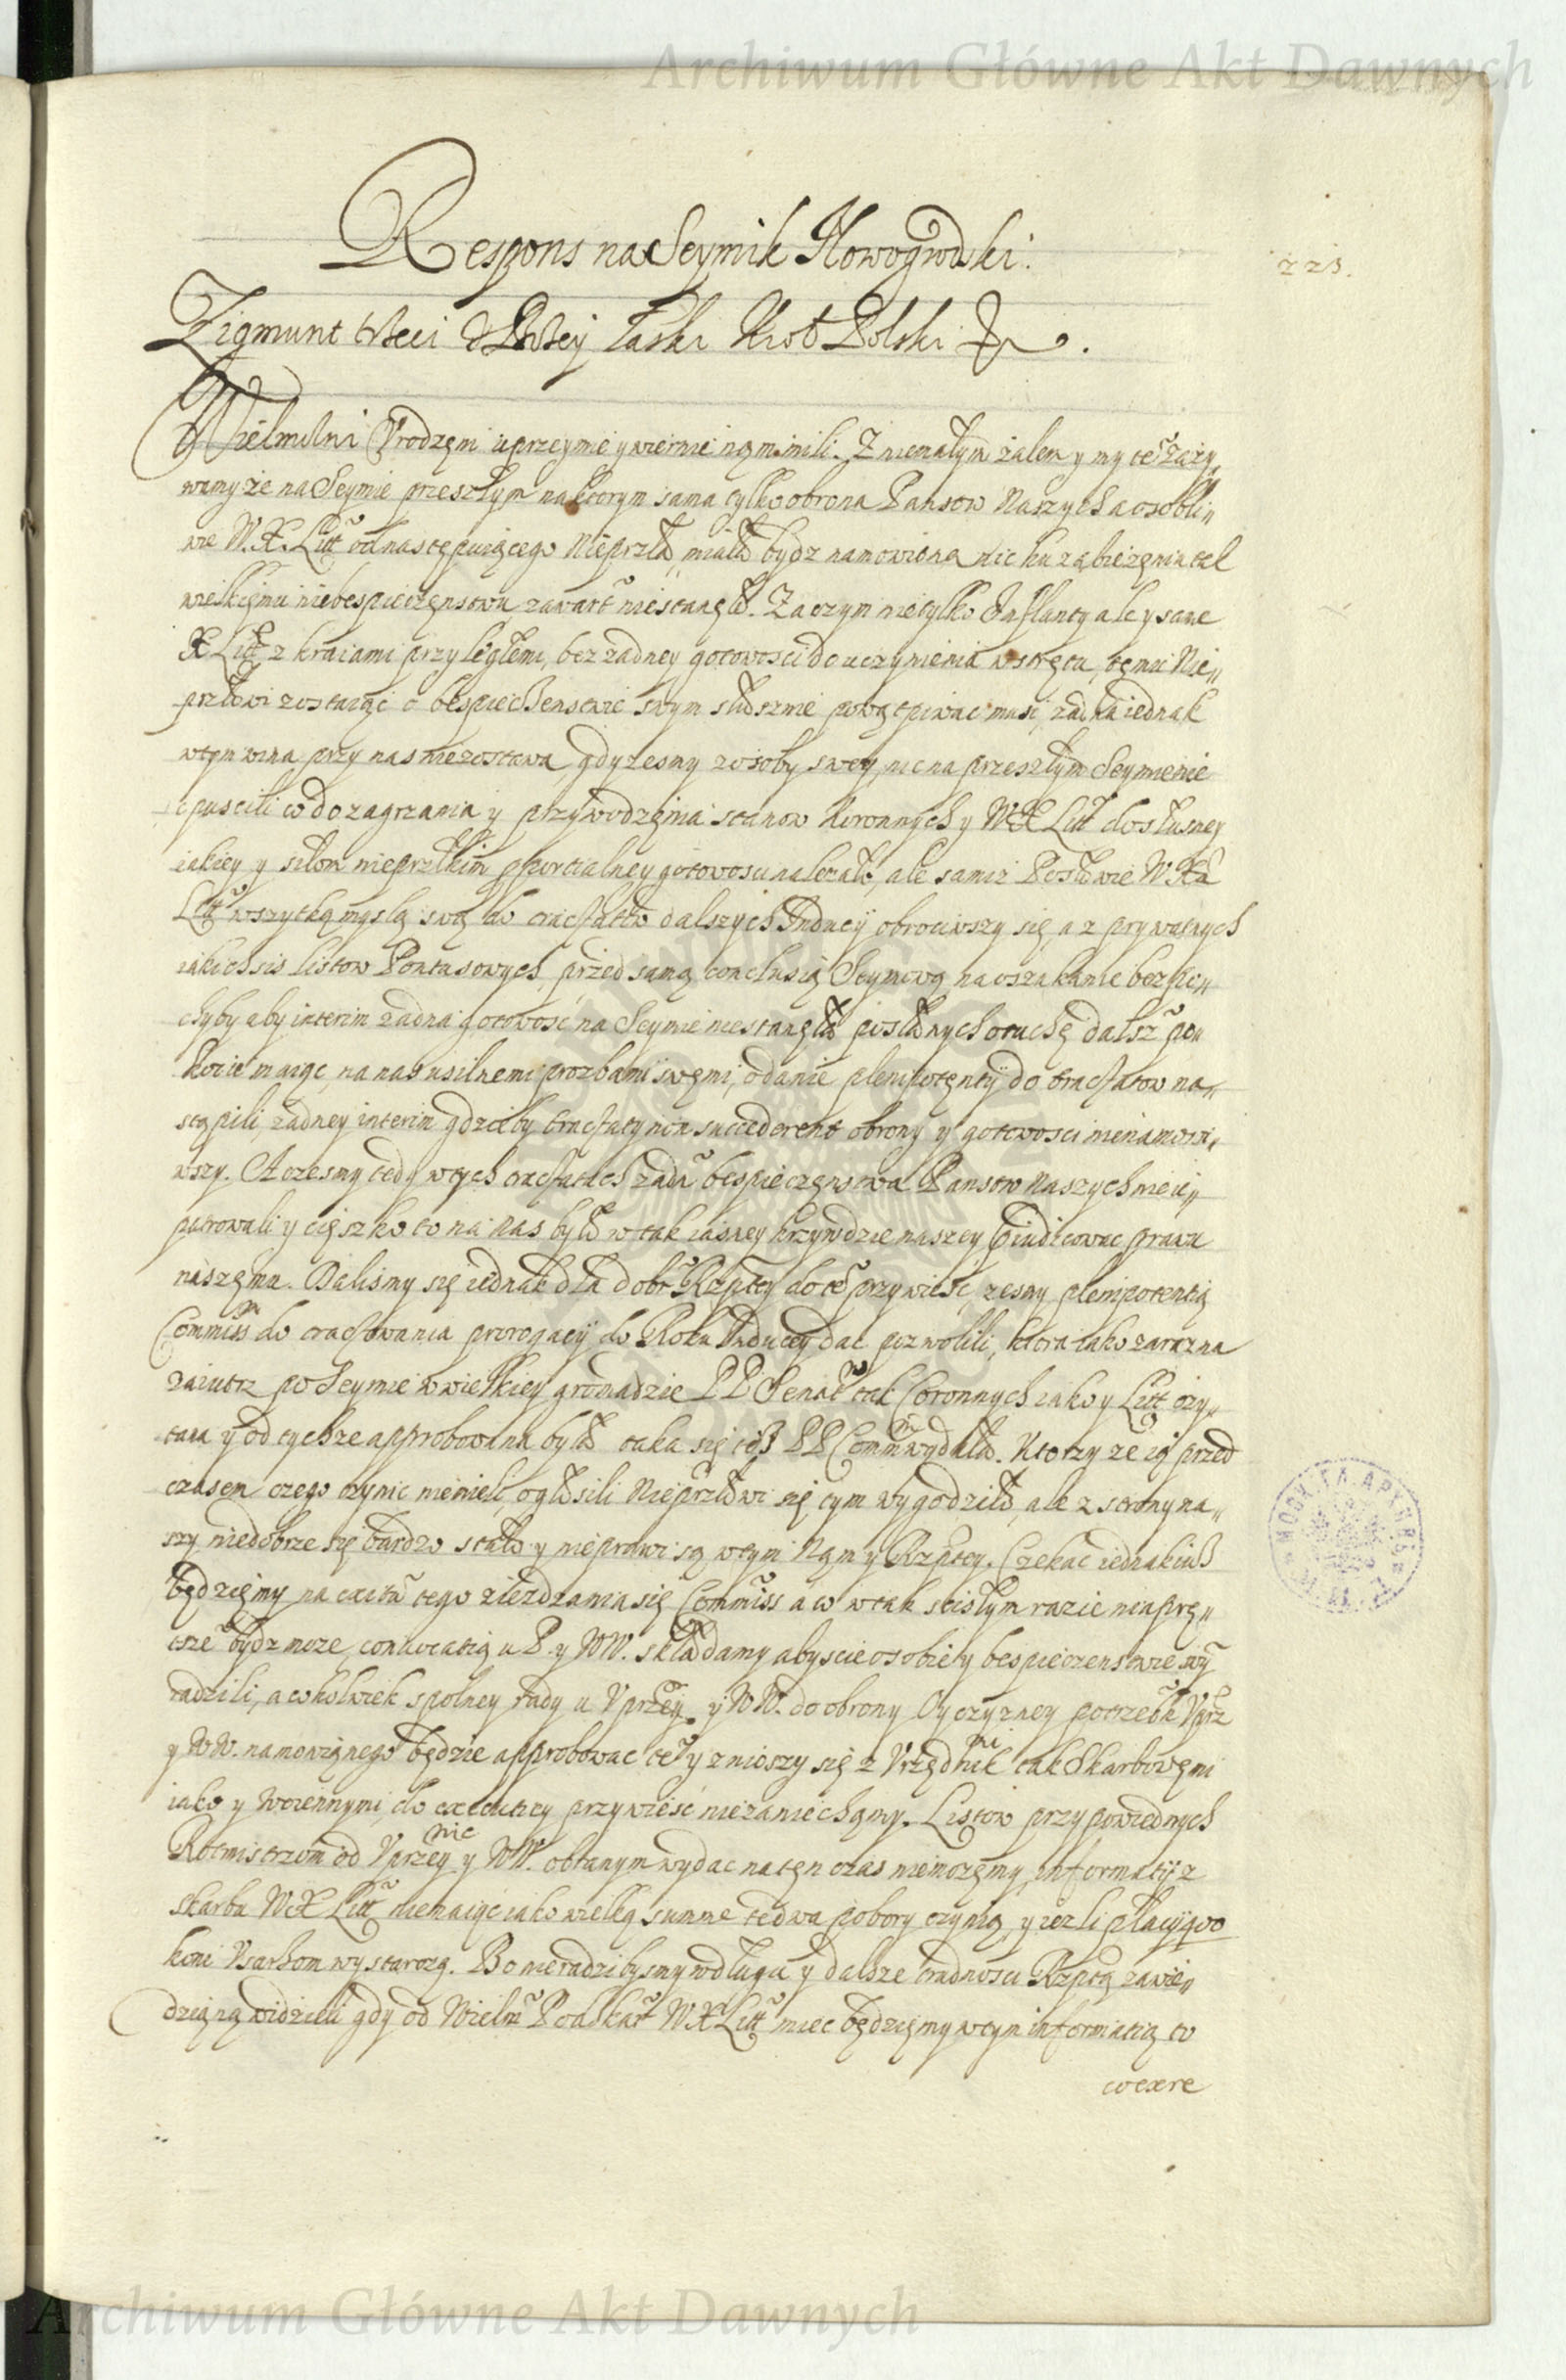 Archiwum Główne Akt Dawnych
Respons na Seymik Nowogrodski.
225.
Zigmunt trzeci z Bożey łaski Krol Polski
Wielmożni Vrodzęni uprzeymie y wiernie nęm mili. Z niemałym żalem y my teº zaży„
wamy że na Seymie przeszłym na ktorym sama tylko obrona Panstw Naszych a osobli„
wie W. X. Litº od następuiącego Nieprzła miała bydz namowiona nic ku zabieżęniu tak
wielkięmu niebespieczęnstwu zawartº niestanęło. Zaczym nie tylko Inflanty ale y same
X Litº z kraiami przyległemi, bez żadney gotowosci do uczynienia wstrętu, tęmu Nie„
przłowi zostaiąc o bespieczenstwie swym słusznie powątpiwac musi, żadna iednak
wtym wina przy nas niezostawa gdyżesmy z osoby swey, nic na przeszłym Seymie nie
opuscili co do zagrzania y przywodzęnia stanow Koronnych y WX Litº do słuszney
iakiey y siłom nieprzłkim pporcialney gotowosci należało, ale sami Posłowie W Xa
Litº wszytką myslą swą do tractatow dalszych Inducÿ obrociwszy się, a z prywatnych
iakichsis listow Pontusowych, przed samą conclusią Seymową na oszukanie bez po„
chyby aby interim żadna gotowość na Seymie niestanęła posłanych otuchę dalszº po„
koiu maiąc, na nas usilnemi prozbami swęmi, o danie plenipotęntÿ do tractatow na„
stąpili, żadney interim gdzieby tractaty non succederent obrony y gotowosci nienamowi„
wszy. Aczesmy tedy w tych tractatach żadº bespieczęnstwa Panstw Naszych nie u„
patrowali y cięszko to na nas było w tak iasney krzywdzie naszey piudicowac prawu
naszęmu. Daliśmy się iednak dla dobrº Rzptey do teº przywieść, żesmy plenipotentią
Commiss do tractowania prorogacÿ do Roku Inducey dac pozwolili, ktora iako zaraz na
zaiutrz po Seymie w wielkiey gromadzie PP Senatº tak Coronnych iako y Litº czy„
tana y od tychże approbowana była taka się też PP Commm wydała. Ktorzy że ią przed
czasem czego czynic niemieli, ogłosili Nieprzłowi się tym wygodziło, ale z strony na„
szy niedobrze się bardzo stało y nieprawi są wtym Nęm y Rzptey. Czekac iednak iuż
będzięmy na exitū tego ziezdzania się Commiss a co w tak scisłym razie nayprę„
tsze bydz może, convocatią u P. y WW. składamy abyscie o sobie y bespieczenstwie swº
radzili, a cokolwiek spolney rady u Vprzey. y WW. do obrony Oyczyzney potrzebº Vprz
y WW. namowiąnego będzie approbowac teº y zniosszy się z Vrzędnikmi tak Skarbowęmi
iako y Woiennymi, do executiey przywieść niezaniechamy. Listow przypowiednych
Rotmistrzom od Vprzey y WW. obranym wydac na tęn czas niemożęmy, informatÿ z
skarbu WX Litº niemaiąc iako wielką summę te dwa pobory czynią, y iezli płacÿ
koni Vsarzom wystarczą. Bo nieradzibysmy w długu y dalsze trudnosci Rzptą zawie„
dzioną widzieli gdy od Wielmº Podskarº WX Litº miec będzięmy wtym informatią to
co ex re
Archiwum Główne Akt Dawnych